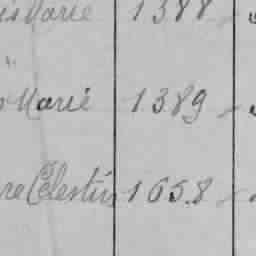 Marie 1388
Marie 1389
re Célestin 1658